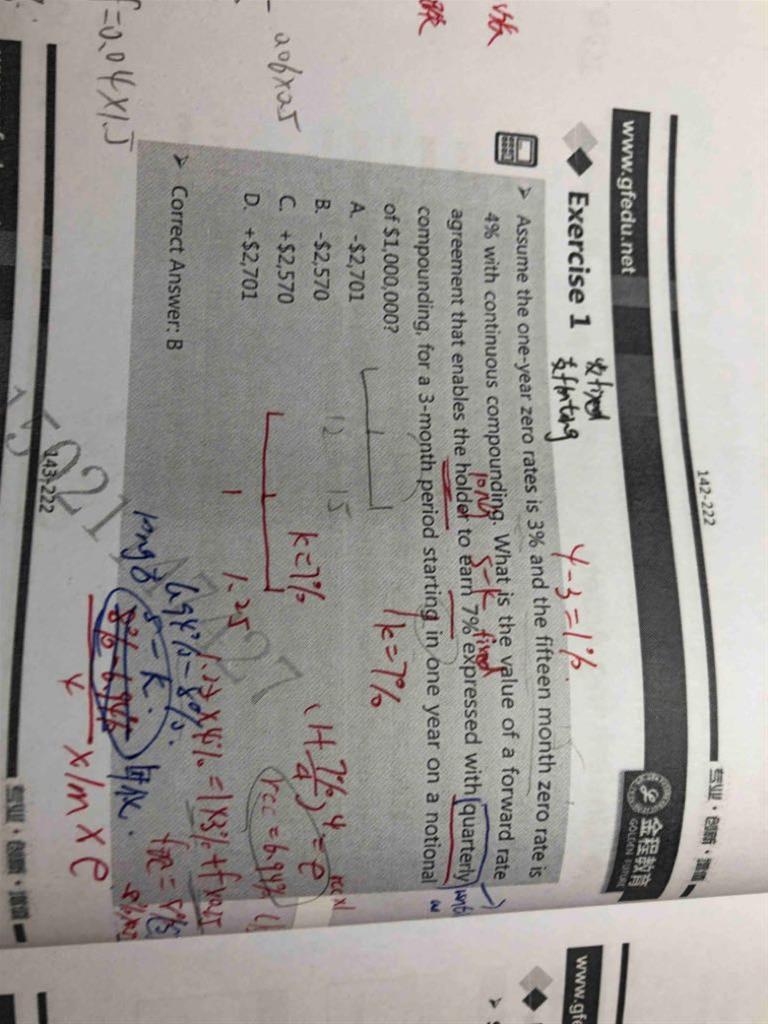 142-222
专业·创新·增值
www.gfedu.net
金程教育
GOLDEN FUTURE
Exercise 1
收fixed
支floating
4-3=1%
➢ Assume the one-year zero rates is 3% and the fifteen month zero rate is
4% with continuous compounding. What is the value of a forward rate
long
S-K
fixed
agreement that enables the holder to earn 7% expressed with quarterly
compounding, for a 3-month period starting in one year on a notional
of $1,000,000?
k=7%
A. -$2,701
B. -$2,570
C. +$2,570
D. +$2,701
12 15
k=7%
1 1.25
➢ Correct Answer: B
rcc=6.94%
6.94%-8%
1.25×4%=1×3%+f×0.25
long
S-K
8%-6.94%
143-222
专业·创新·增值
=0.04×1.5
www.gf